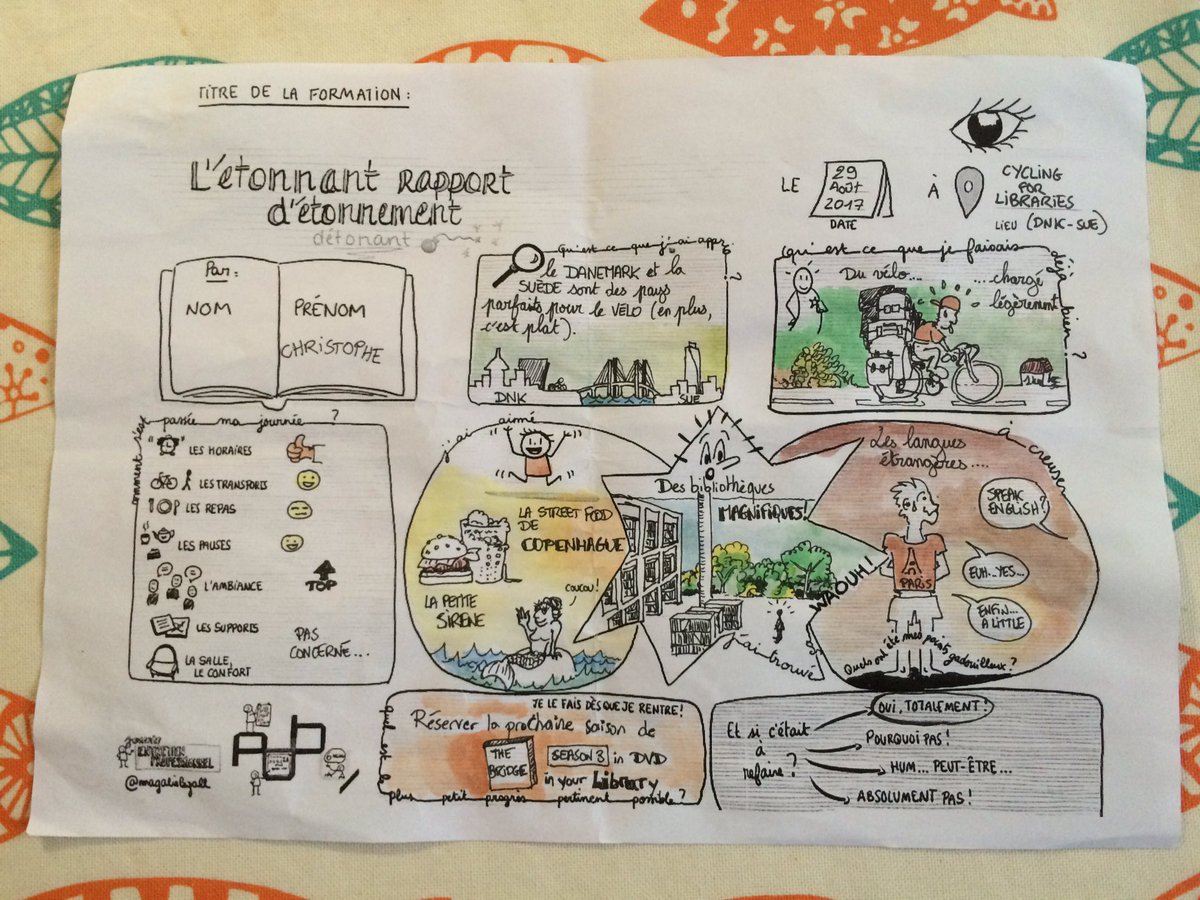 TITRE DE LA FORMATION :
L'étonnant RAPPORT
d'étonnement
détonant
LE
29
Août
2017
DATE
À
CYCLING
FOR
LIBRARIES
LIEU (DNK-SUE)
Par :
NOM
PRÉNOM
CHRISTOPHE
Qu'est ce que j'ai appris ?
le DANEMARK et la
SUÈDE sont des pays
parfaits pour le VÉLO (en plus,
c'est plat).
DNK
SUE
Qu'est ce que je faisais déjà bien ?
Du vélo...
... chargé
légèrement
comment s'est passée ma journée ?
LES HORAIRES
LES TRANSPORTS
LES REPAS
LES PAUSES
L'AMBIANCE
TOP
LES SUPPORTS
LA SALLE,
LE CONFORT
PAS
CONCERNÉ...
j'ai aimé
LA STREET FOOD
DE
COPENHAGUE
LA PETITE
SIRÈNE
COUCOU !
Des bibliothèques
MAGNIFIQUES !
j'ai trouvé
WAOUH !
à creuser
Les langues
étrangères....
SPEAK
ENGLISH ?
PARIS
EUH...YES...
ENFIN...
A LITTLE
Quels ont été mes points gadouilleux ?
ENTRETIEN
PROFESSIONNEL
@magalielegall
quel est le plus petit progrès pertinent possible ?
JE LE FAIS DÈS QUE JE RENTRE !
Réserver la prochaine saison de
THE
BRIDGE
SEASON 3 in DVD
in your Library
Et si c'était
à
refaire ?
OUI, TOTALEMENT !
POURQUOI PAS !
HUM... PEUT-ÊTRE...
ABSOLUMENT PAS !